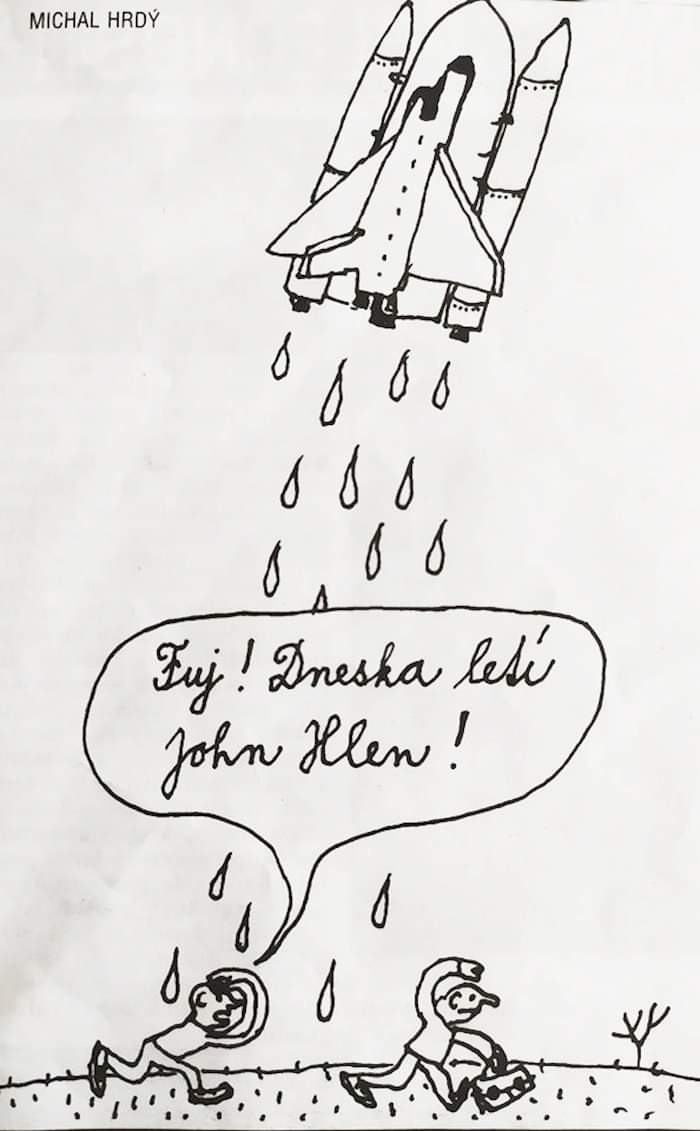 MICHAL HRDÝ
Fuj! Dneska letí
John Hlen!